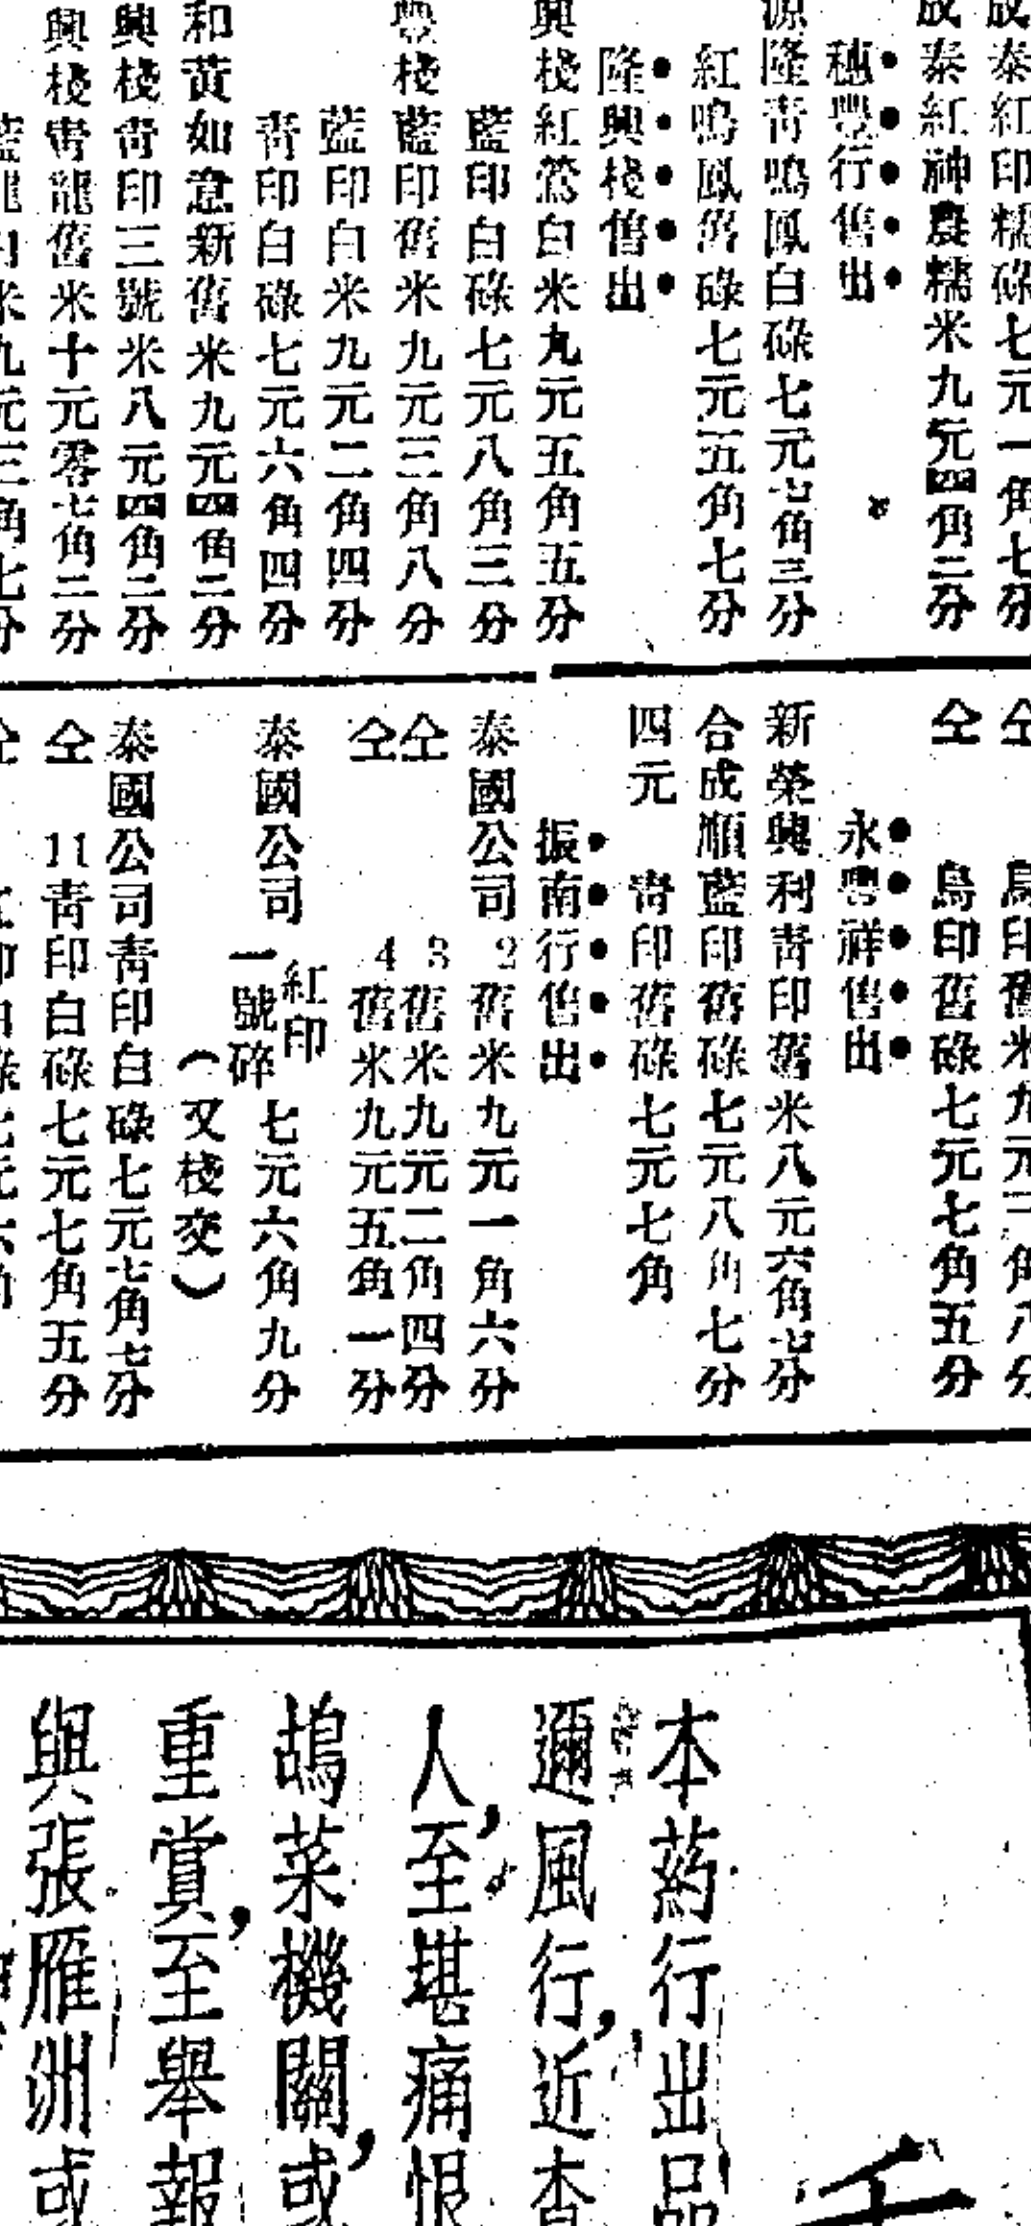 成泰紅印糯碌七元一角七分
成泰紅神農糯米九元四角二分
穗豐行售出
源隆青鳴鳳白碌七元七角三分
紅鳴鳳舊碌七元五角七分
隆興棧售出
興棧紅鶯白米九元五角五分
藍印白碌七元八角三分
豐棧藍印舊米九元三角八分
藍印白米九元二角四分
青印白碌七元六角四分
和黃如意新舊米九元四角二分
興棧青印三號米八元四角二分
興棧青龍舊米十元零七角二分
藍龍白米九元三角七分
仝 烏印舊米九元二角八分
仝 烏印舊碌七元七角五分
永豐祥售出
新榮興利青印舊米八元六角七分
合成順藍印舊碌七元八角七分
四元 青印舊碌七元七角
振南行售出
泰國公司 2舊米九元一角六分
仝 3舊米九元二角四分
仝 4舊米九元五角一分
泰國公司 紅印一號碎 七元六角九分
（又棧交）
泰國公司青印白碌七元七角七分
仝 11青印白碌七元七角五分
仝 印白碌七元六角
本葯行出品
邇風行，近查
人，至堪痛恨
鴣菜機關，或
重賞，至舉報
與張雁洲或
千